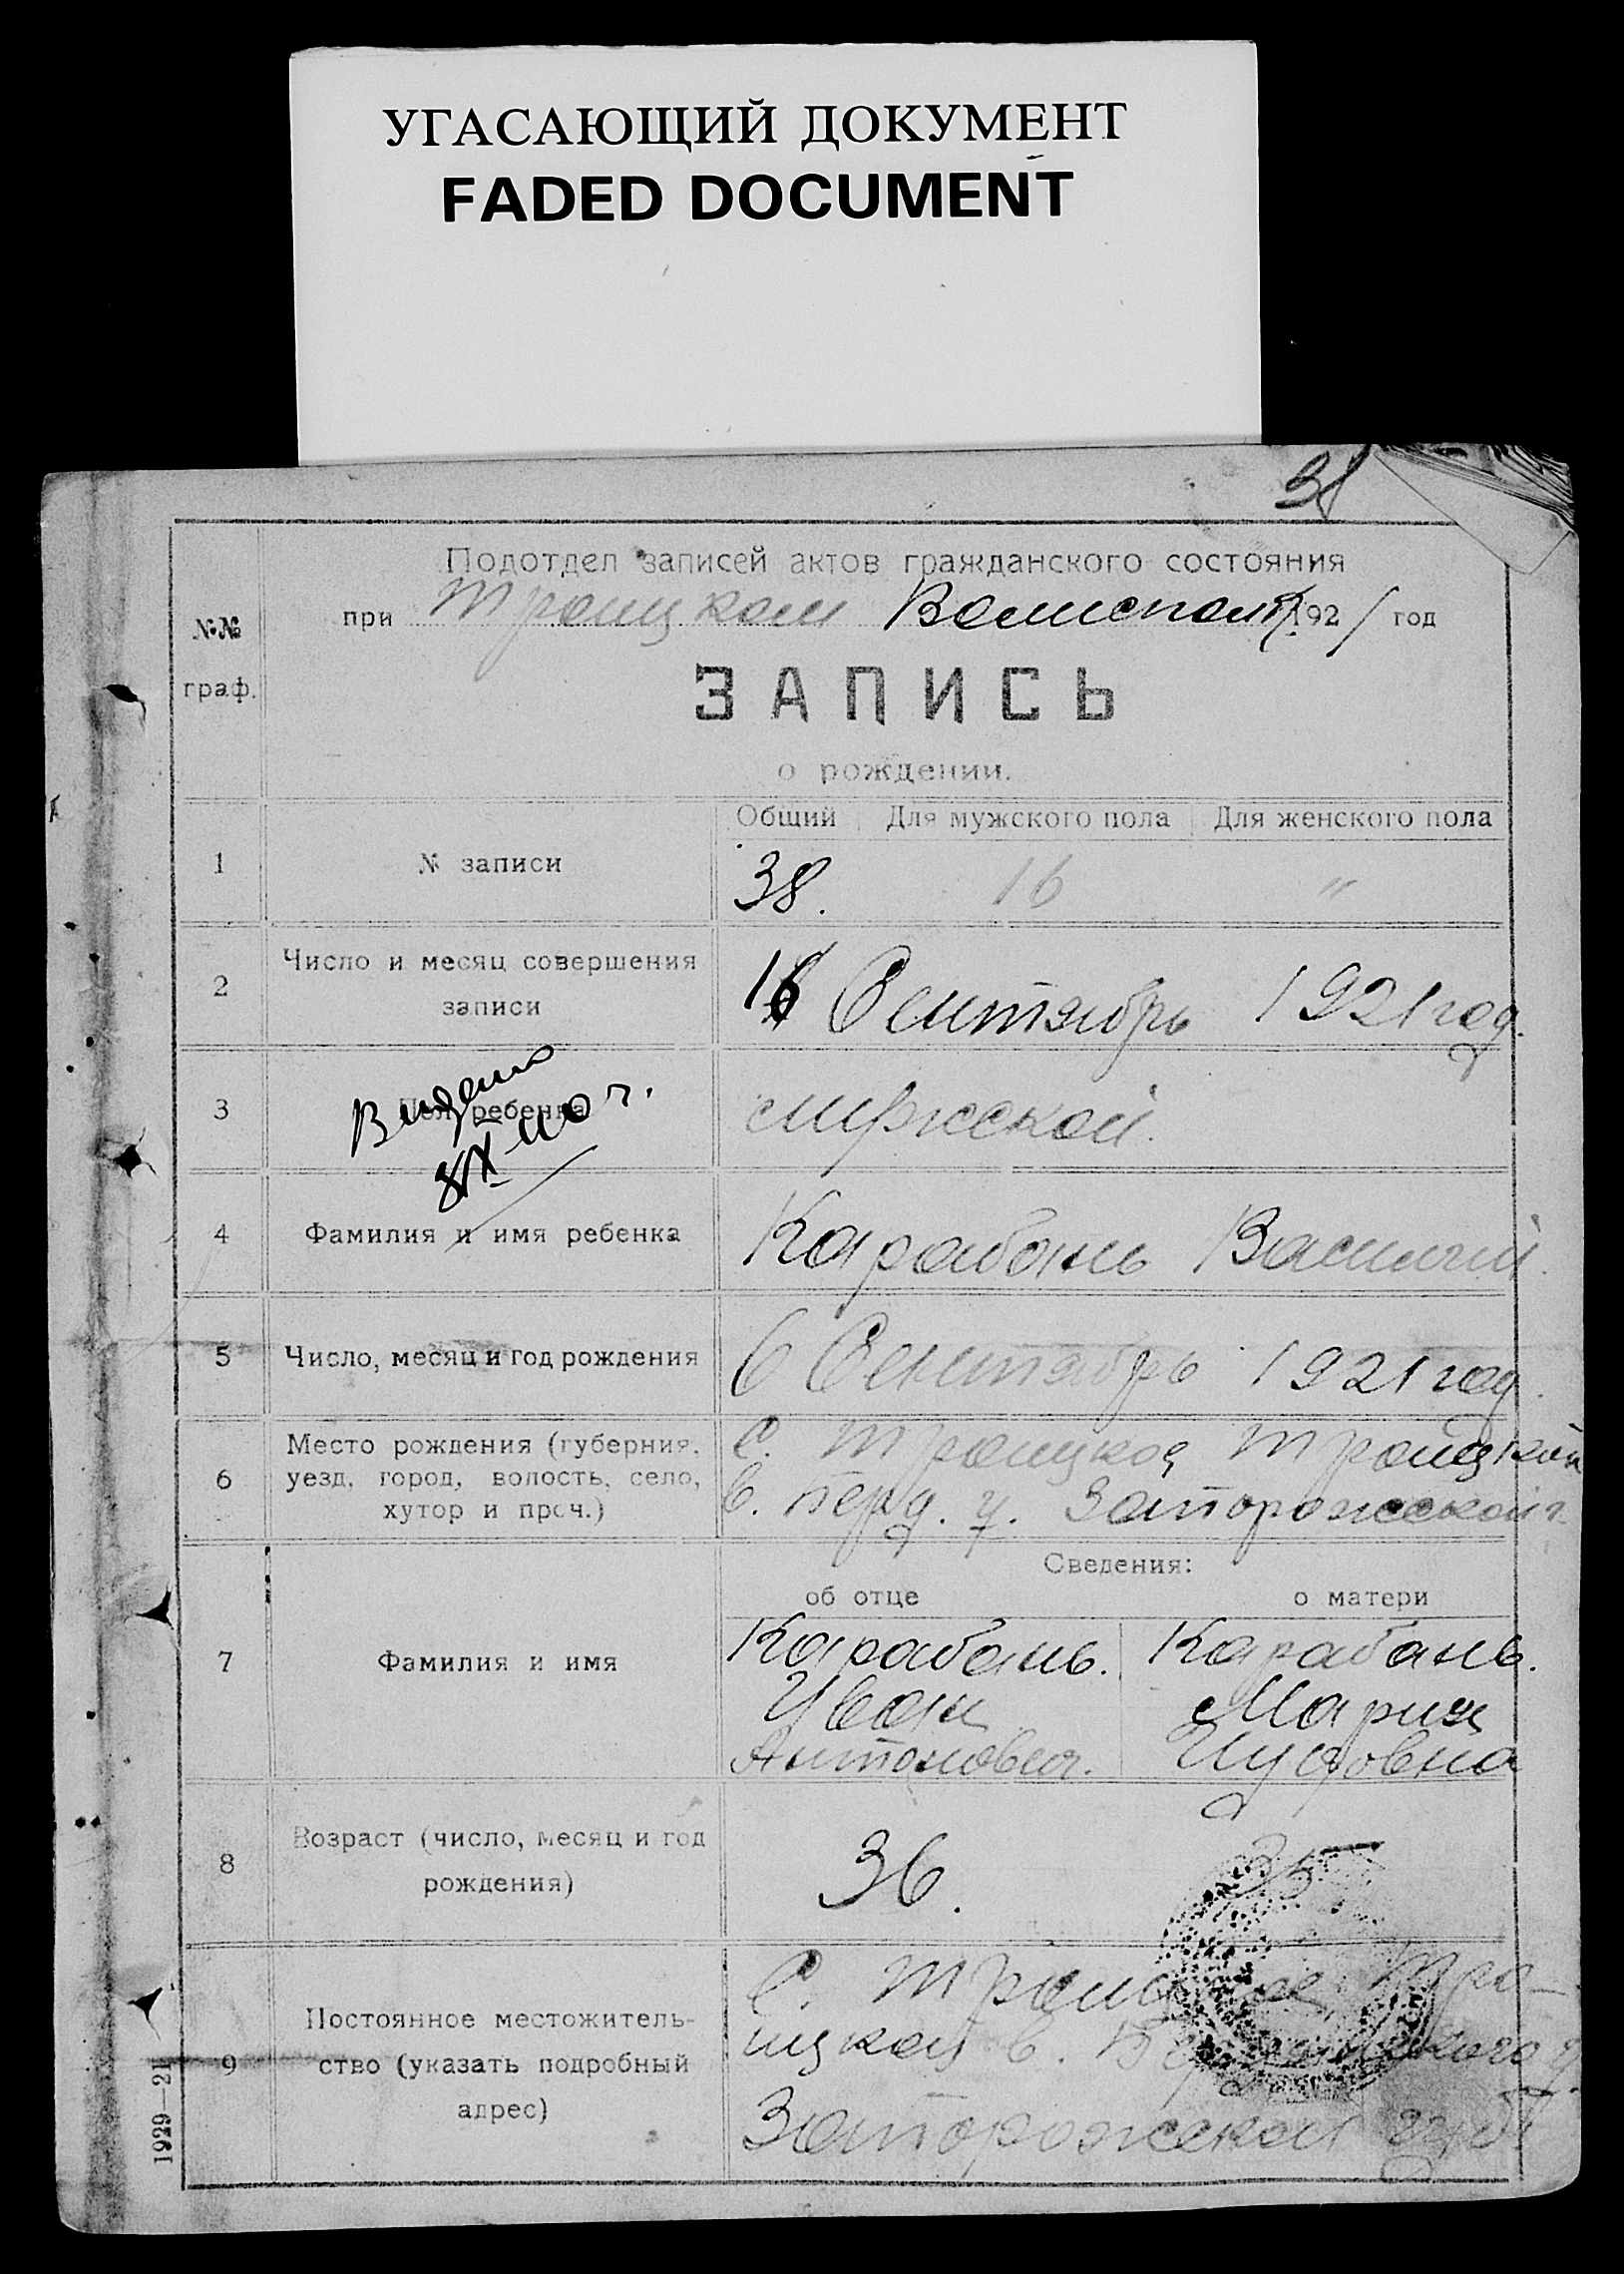 УГАСАЮЩИЙ ДОКУМЕНТ
FADED DOCUMENT
38
Подотдел записей актов гражданского состояния
при Троицком Волисполк. 1921 год
№№
граф.
ЗАПИСЬ
о рождении.
Общий Для мужского пола Для женского пола
1 № записи 38. 16 "
2 Число и месяц совершения
записи
16 Сентябрь 1921 год.
3 Пол ребенка мужской.
Видано
IX 40 г.
4 Фамилия и имя ребенка Карабань Василий.
5 Число, месяц и год рождения 6 Сентябрь 1921 год.
6 Место рождения (губерния,
уезд, город, волость, село,
хутор и проч.)
С. Троицкое Троицкой
в. Берд. у. Запорожской г.
Сведения:
об отце о матери
7 Фамилия и имя
Карабань. Карабань.
Иван Мария
Антонович.
8 Возраст (число, месяц и год
рождения)
36. 35
9 Постоянное местожитель-
ство (указать подробный
адрес)
С. Троицкое Тро-
ицкой в. Бердянского у.
Запорожской губ.
1929—21